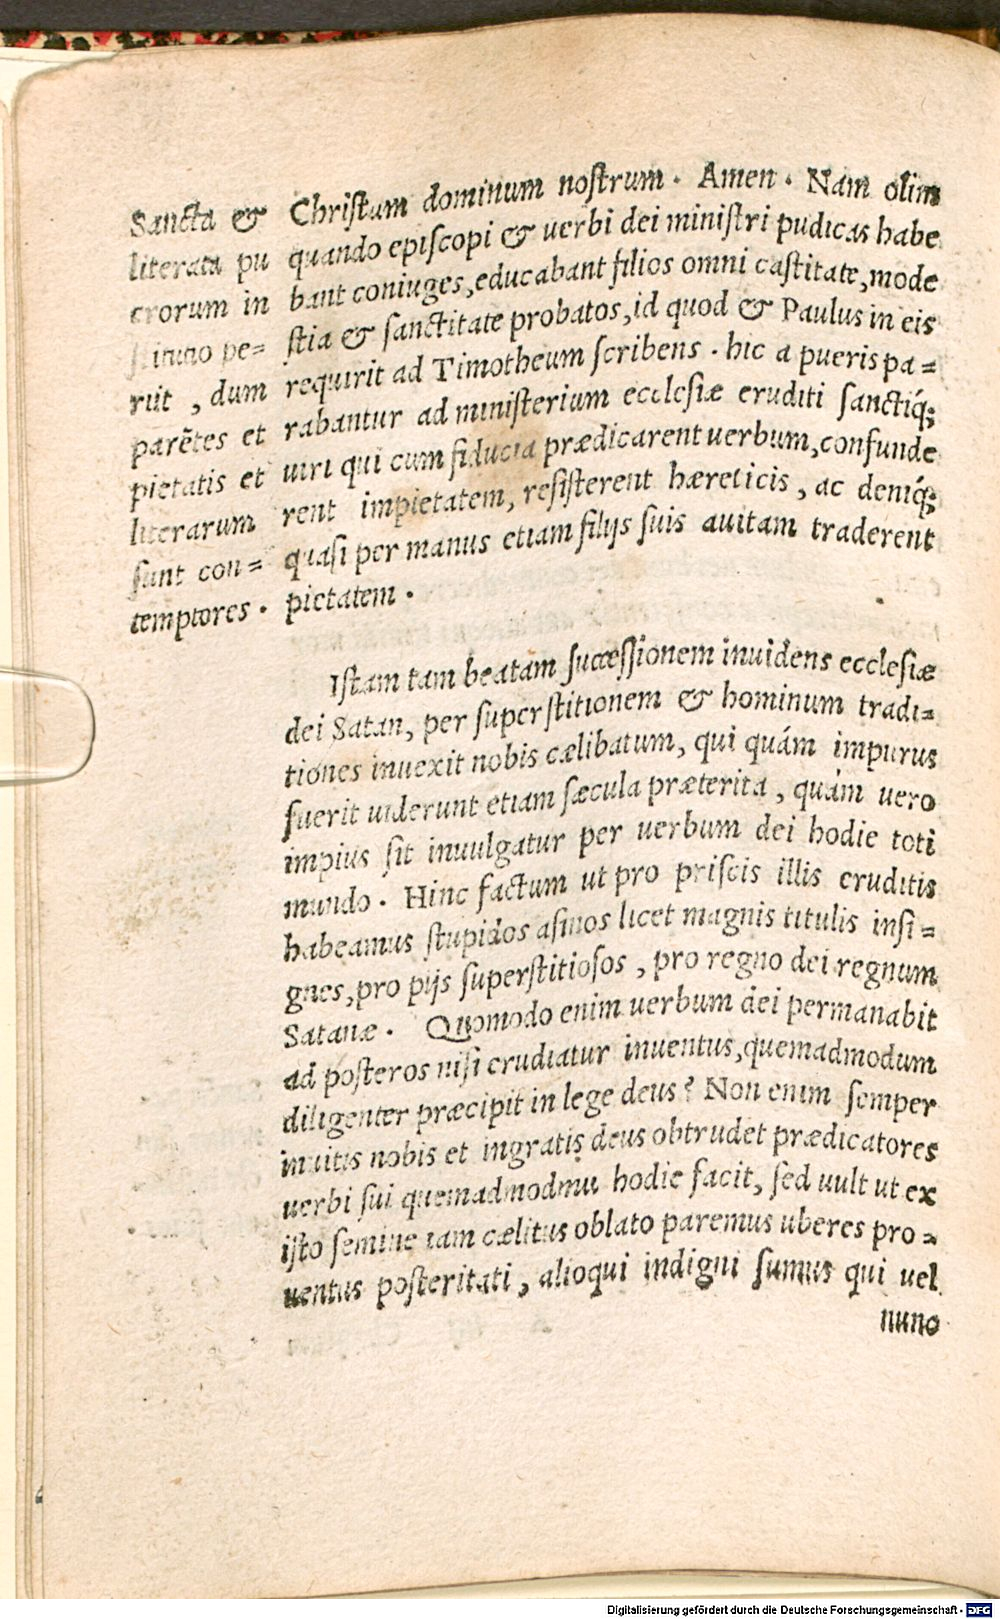 Sancta &
literata pu
erorum in
stitutio pe=
riit, dum
parētes et
pietatis et
literarum
sunt con=
temptores.
Christum dominum nostrum. Amen. Nam olim
quando episcopi & uerbi dei ministri pudicas habe
bant coniuges, educabant filios omni castitate, mode
stia & sanctitate probatos, id quod & Paulus in eis
requirit ad Timotheum scribens. hic a pueris pa=
rabantur ad ministerium ecclesiæ eruditi sanctiq́;
uiri qui cum fiducia prædicarent uerbum, confunde
rent impietatem, resisterent hæreticis, ac deniq́;
quasi per manus etiam filijs suis auitam traderent
pietatem.
Istam tam beatam successionem inuidens ecclesiæ
dei Satan, per superstitionem & hominum tradi=
tiones inuexit nobis cælibatum, qui quám impurus
fuerit uiderunt etiam sæcula præterita, quám uero
impius sit inuulgatur per uerbum dei hodie toti
mundo. Hinc factum ut pro priscis illis eruditis
habeamus stupidos asinos licet magnis titulis insi=
gnes, pro pijs superstitiosos, pro regno dei regnum
Satanæ. Quomodo enim uerbum dei permanabit
ad posteros nisi erudiatur inuentus, quemadmodum
diligenter præcipit in lege deus? Non enim semper
inuitis nobis et ingratis deus obtrudet prædicatores
uerbi sui quemadmodmu hodie facit, sed uult ut ex
isto semine iam cælitus oblato paremus uberes pro=
uentus posteritati, alioqui indigni sumus qui uel
nunc
Digitalisierung gefördert durch die Deutsche Forschungsgemeinschaft - DFG